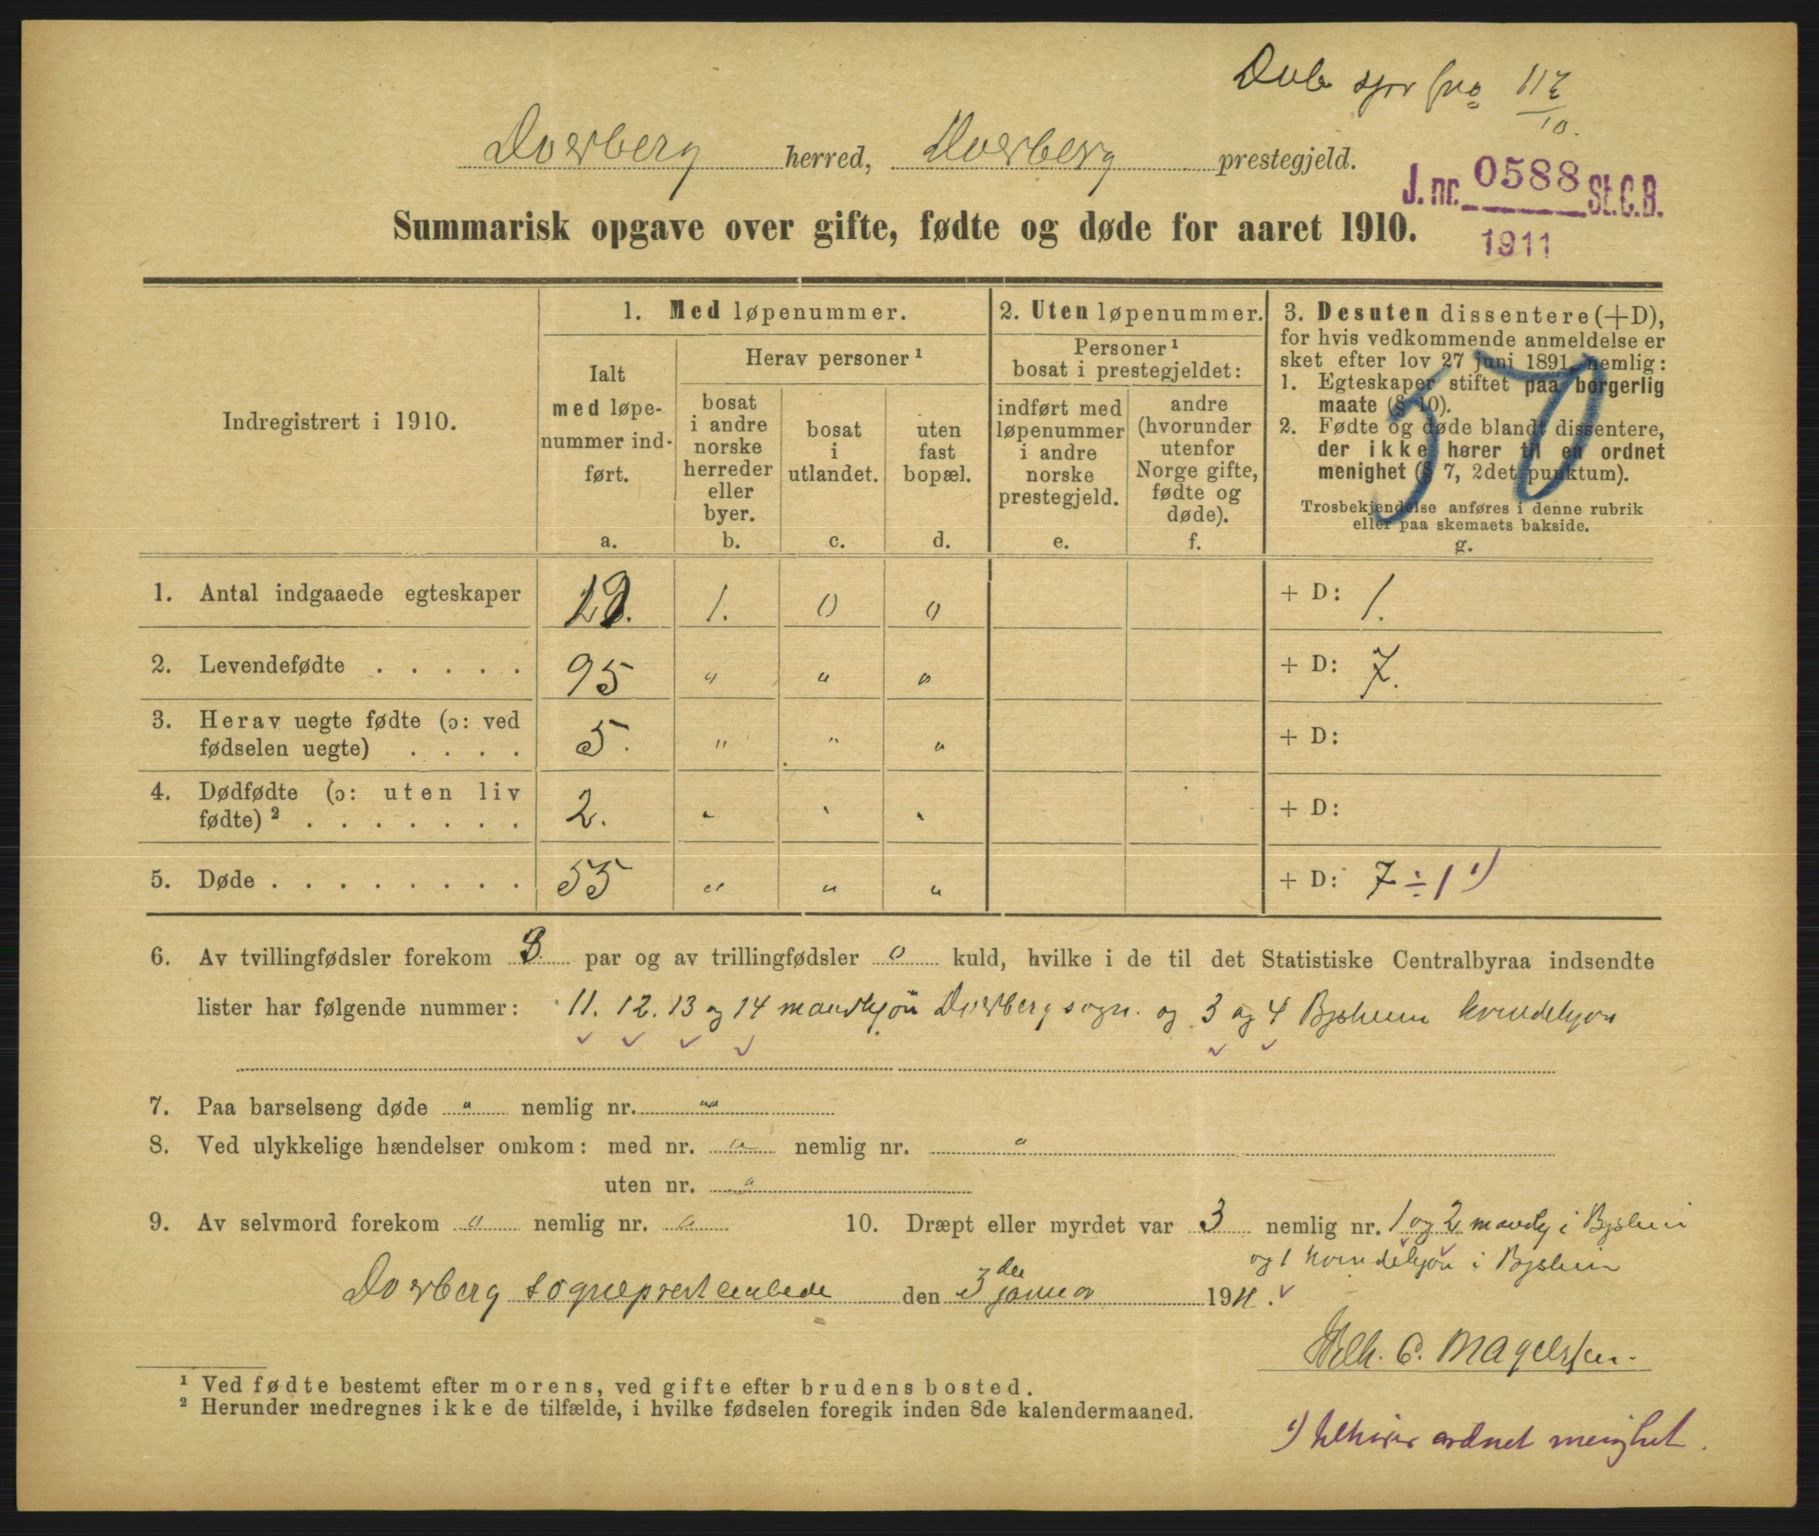 Dverberg herred, Dverberg prestegjeld.
J. nr. 0588 St. C. B.
1911
Summarisk opgave over gifte, fødte og døde for aaret 1910.
Indregistrert i 1910.
1. Med løpenummer.
Ialt med løpenummer indført.
a.
Herav personer ¹
bosat i andre norske herreder eller byer.
b.
bosat i utlandet.
c.
uten fast bopæl.
d.
2. Uten løpenummer.
Personer ¹ bosat i prestegjeldet:
indført med løpenummer i andre norske prestegjeld.
e.
andre (hvorunder utenfor Norge gifte, fødte og døde).
f.
3. Desuten dissentere (+D), for hvis vedkommende anmeldelse er sket efter lov 27 juni 1891, nemlig:
1. Egteskaper stiftet paa borgerlig maate (§ 10).
2. Fødte og døde blandt dissentere, der ikke hører til en ordnet menighet (§ 7, 2det punktum).
Trosbekjendelse anføres i denne rubrik eller paa skemaets bakside.
g.
1. Antal indgaaede egteskaper 1. 0 0 + D: 1.
2. Levendefødte . . . . . 95 " " " + D: 7.
3. Herav uegte fødte (ɔ: ved fødselen uegte) . . . . 5. " " " + D:
4. Dødfødte (ɔ: uten liv fødte) ² . . . . . . . 2. " " " + D:
5. Døde . . . . . . . . 55 " " " + D: 7 ÷ 1 ¹)
6. Av tvillingfødsler forekom 3 par og av trillingfødsler 0 kuld, hvilke i de til det Statistiske Centralbyraa indsendte
lister har følgende nummer: 11. 12. 13 og 14 mandkjøn Dverberg sogn. og 3 og 4 Bjøheim kvindekjøn
7. Paa barselseng døde " nemlig nr. "
8. Ved ulykkelige hændelser omkom: med nr. " nemlig nr. "
uten nr. "
9. Av selvmord forekom " nemlig nr. " 10. Dræpt eller myrdet var 3 nemlig nr. 1 og 2 mandkj i
og 1 kvindekjøn i
Dverberg sogneprestembede den 3die januar 1911.
Wilh. C. Magelssen.
¹ Ved fødte bestemt efter morens, ved gifte efter brudens bosted.
² Herunder medregnes ikke de tilfælde, i hvilke fødselen foregik inden 8de kalendermaaned.
¹) tilhører ordnet menighet.